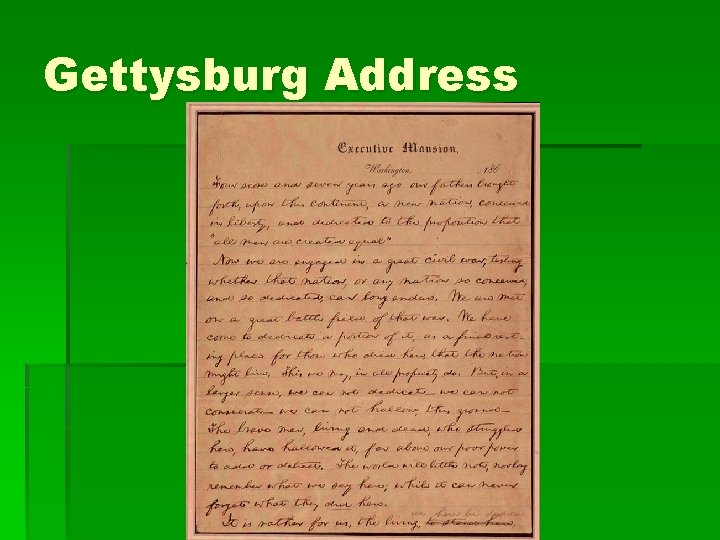 Gettysburg Address
Executive Mansion,
Washington, , 186
Four score and seven years ago our fathers brought
forth, upon this continent, a new nation, conceived
in liberty, and dedicated to the proposition that
"all men are created equal"
Now we are engaged in a great civil war, testing
whether that nation, or any nation so conceived,
and so dedicated, can long endure. We are met
on a great battle field of that war. We have
come to dedicate a portion of it, as a final rest-
ing place for those who died here, that the nation
might live. This we may, in all propriety do. But, in a
larger sense, we can not dedicate — we can not
consecrate — we can not hallow, this ground —
The brave men, living and dead, who struggled
here, have hallowed it, far above our poor power
to add or detract. The world will little note, nor long
remember what we say here; while it can never
forget what they did here.
we here be dedica
It is rather for us, the living, to stand here,